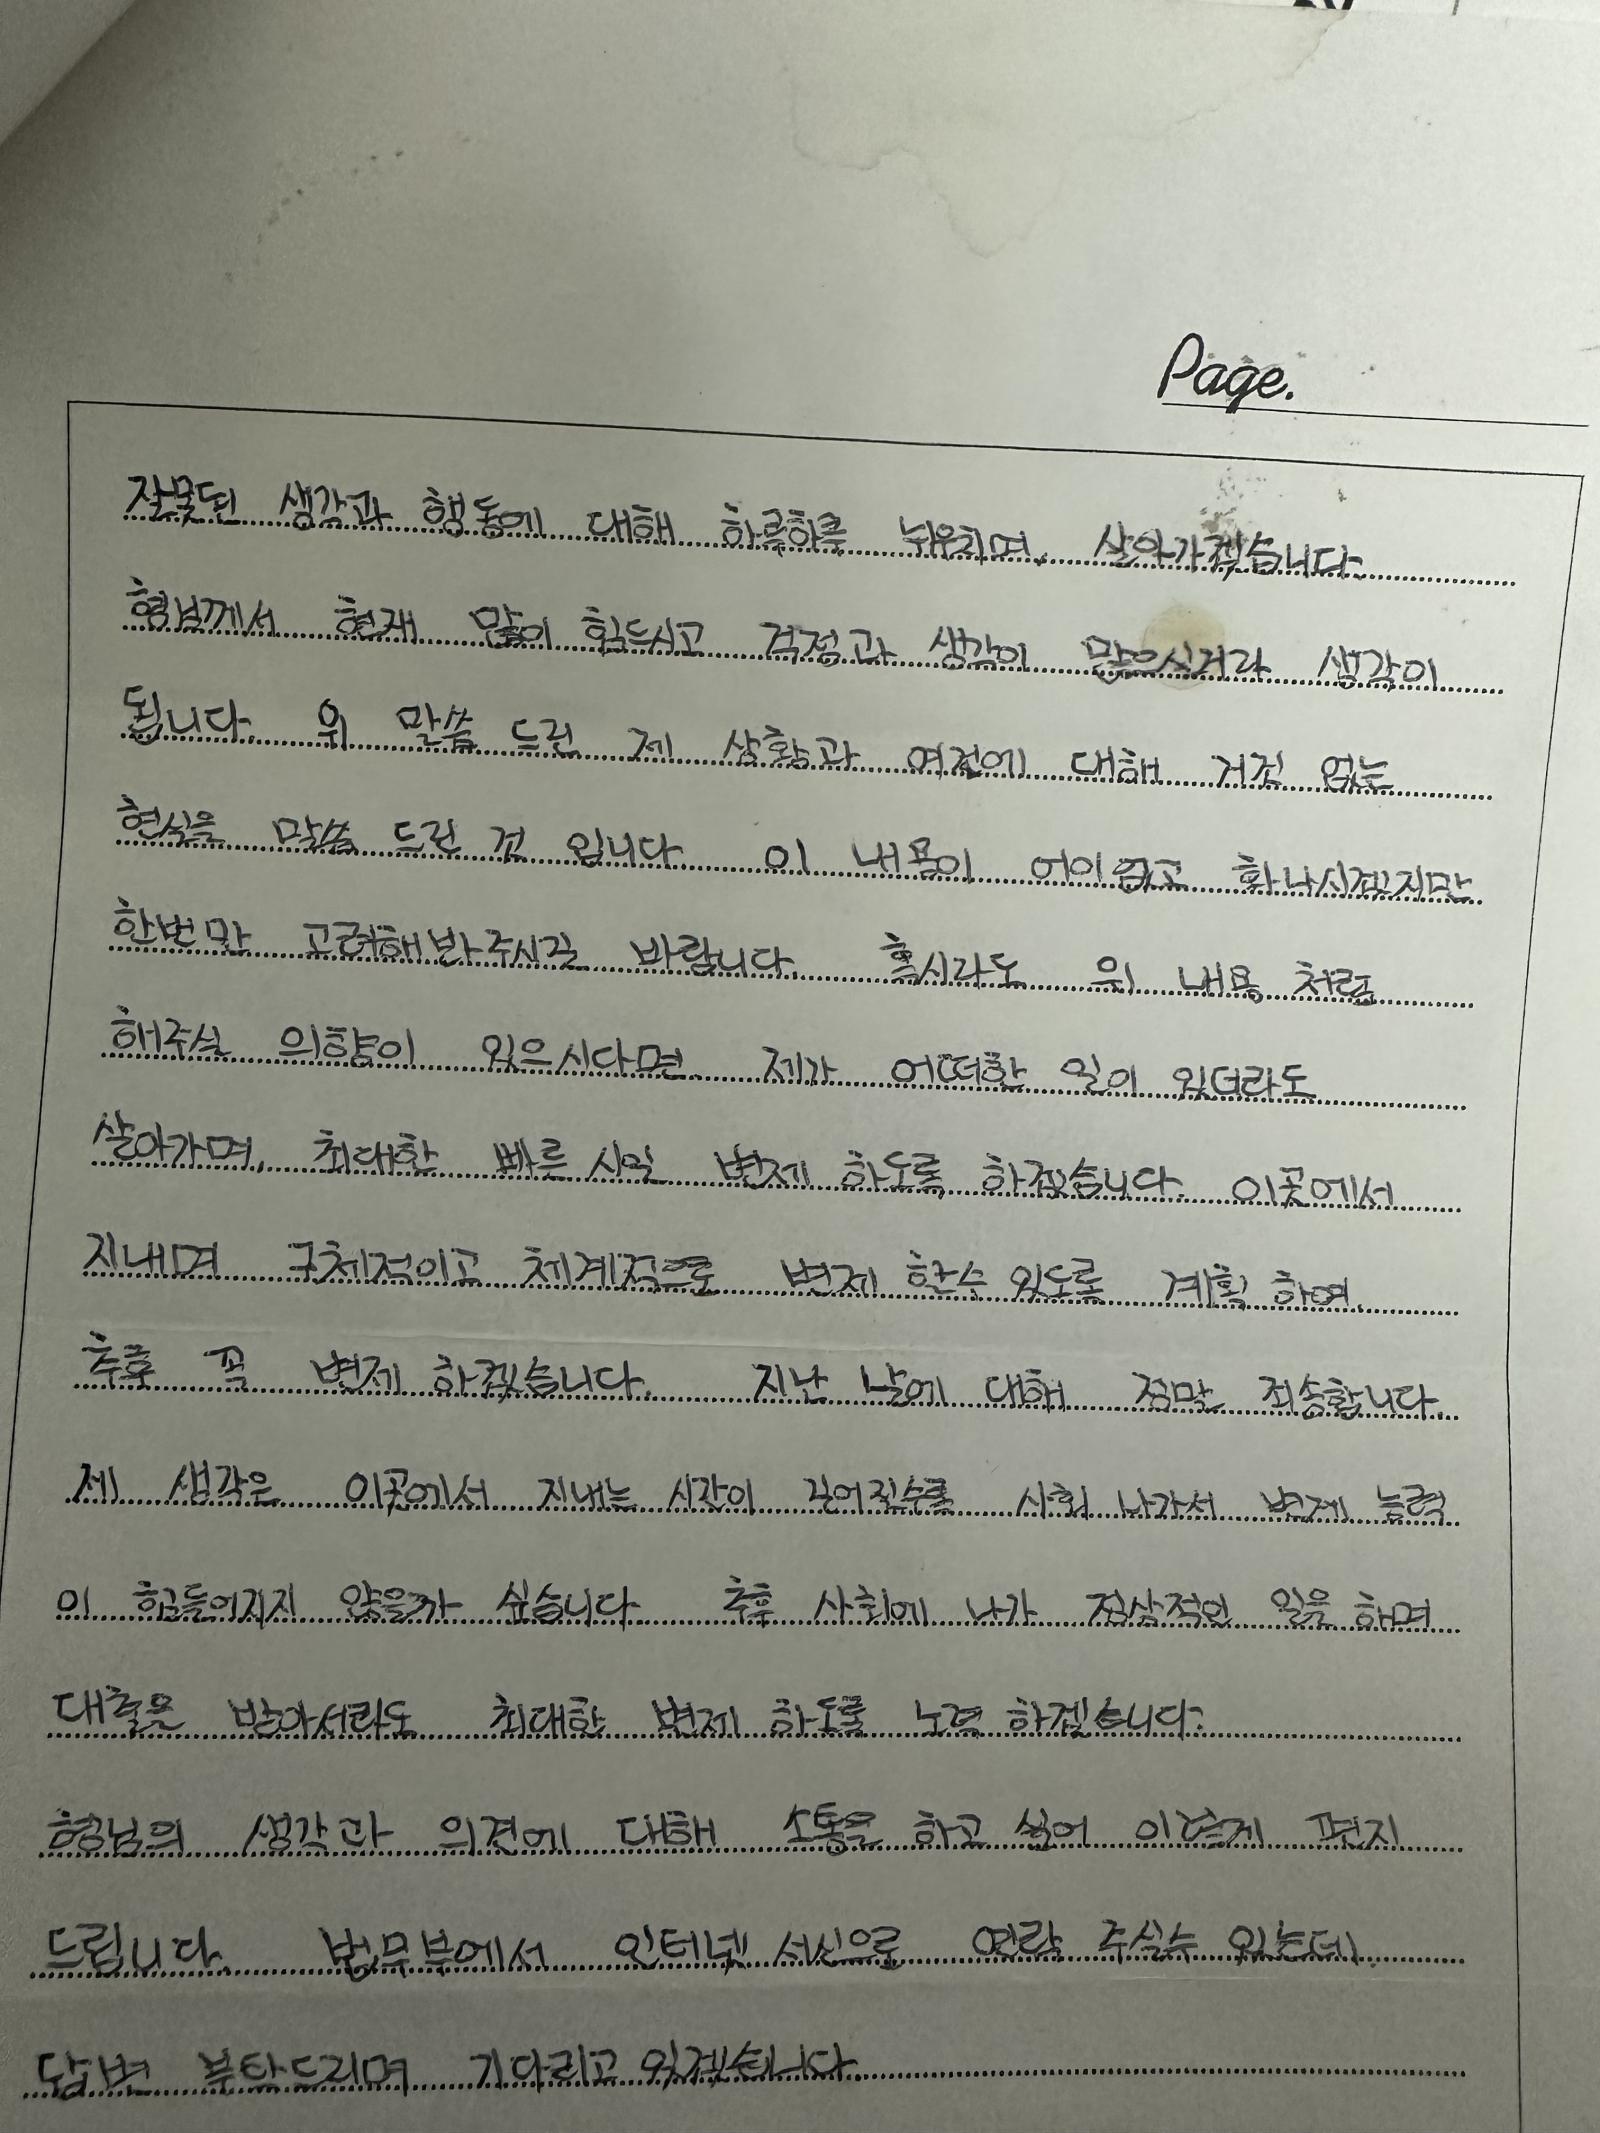 Page.
잘못된 생각과 행동에 대해 하루하루 뉘우치며, 살아가겠습니다.
형님께서 현재 많이 힘드시고 걱정과 생각이 많으실거라 생각이
됩니다. 위 말씀 드린 제 상황과 여건에 대해 거짓 없는
현실을 말씀 드린 것 입니다 이 내용이 어이없고 화나시겠지만
한번만 고려해봐주시길 바랍니다. 혹시라도 위 내용 처럼
해주실 의향이 있으시다면 제가 어떠한 일이 있더라도
살아가며, 최대한 빠른 시일 변제 하도록 하겠습니다. 이곳에서
지내며 구체적이고 체계적으로 변제 할수 있도록 계획 하여,
추후 꼭 변제 하겠습니다. 지난 날에 대해 정말 죄송합니다.
제 생각은 이곳에서 지내는 시간이 길어질수록 사회 나가서 변제 능력
이 힘들어지지 않을까 싶습니다 추후 사회에 나가 정상적인 일을 하며
대출을 받아서라도 최대한 변제 하도록 노력 하겠습니다.
형님의 생각과 의견에 대해 소통을 하고 싶어 이렇게 편지
드립니다. 법무부에서 인터넷 서신으로 연락 주실수 있는데,
답변 부탁드리며 기다리고 있겠습니다.